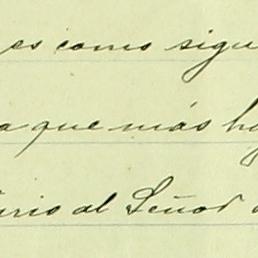 es como sigu
a que más ha
urio al Señor d